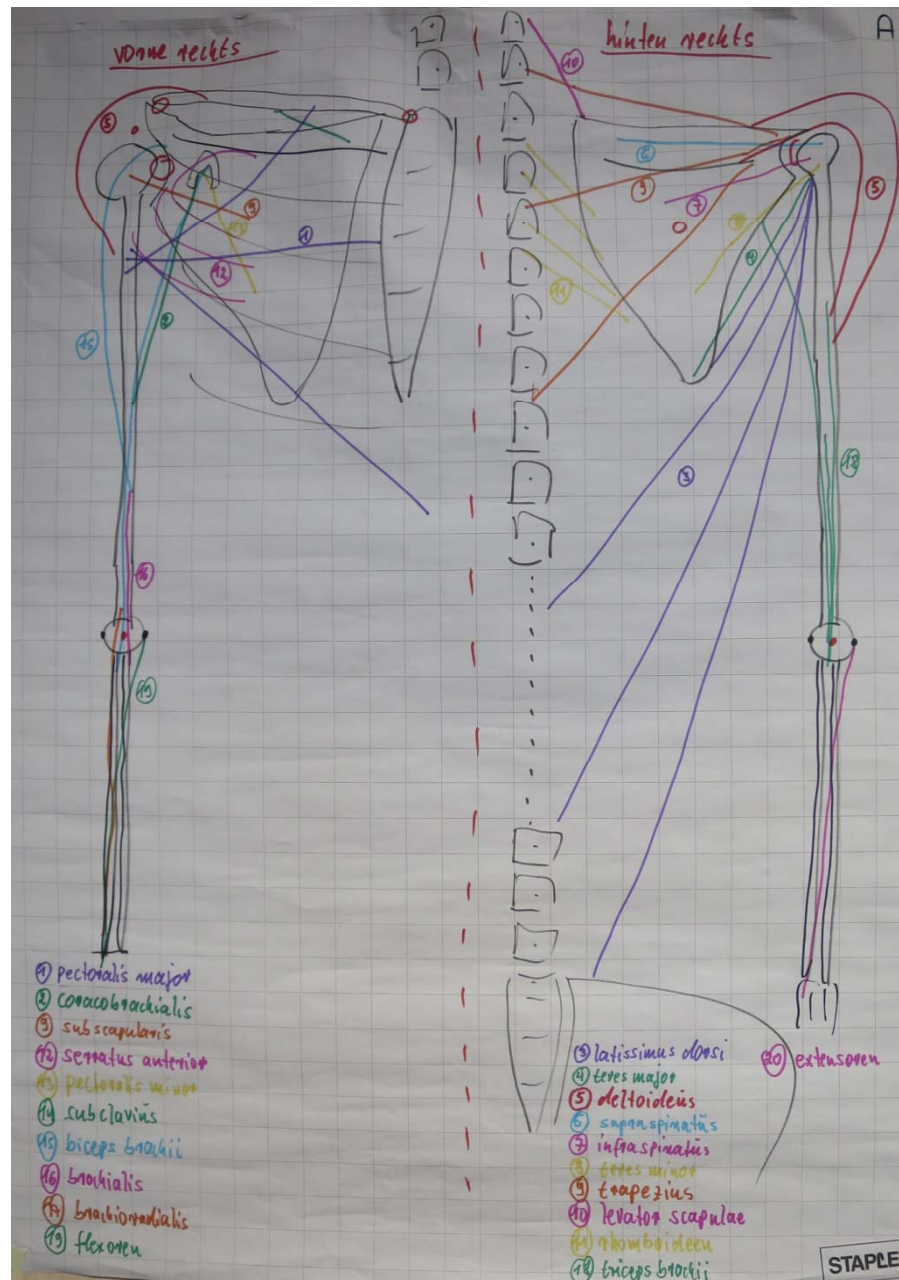 vorne rechts
hinten rechts
A
10
5
6
9
7
9
13
1
8
12
4
5
2
11
15
3
18
16
19
1 pectoralis major
2 coracobrachialis
9 subscapularis
12 serratus anterior
13 pectoralis minor
14 subclavius
15 biceps brachii
16 brachialis
17 brachioradialis
19 flexoren
3 latissimus dorsi
20 extensoren
4 teres major
5 deltoideüs
6 supraspinatüs
7 infraspinatüs
8 teres minor
9 trapezius
10 levator scapulae
11 rhomboideen
18 triceps brachii
STAPLE